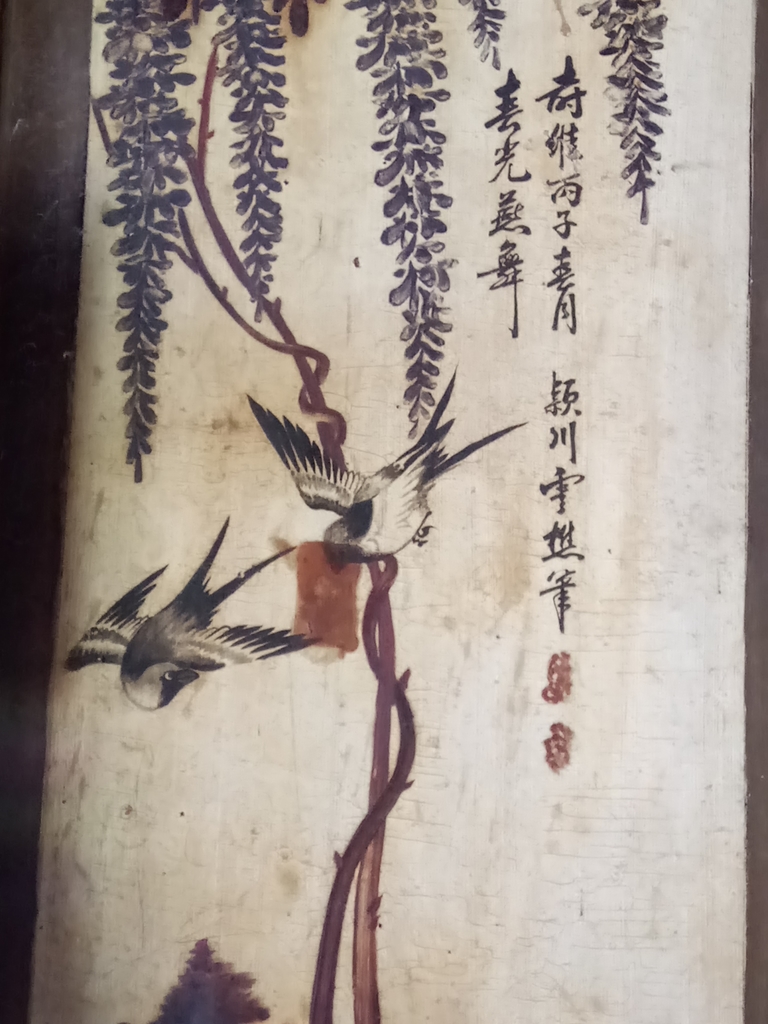 時維丙子春月 穎川雲樵筆
春光燕舞